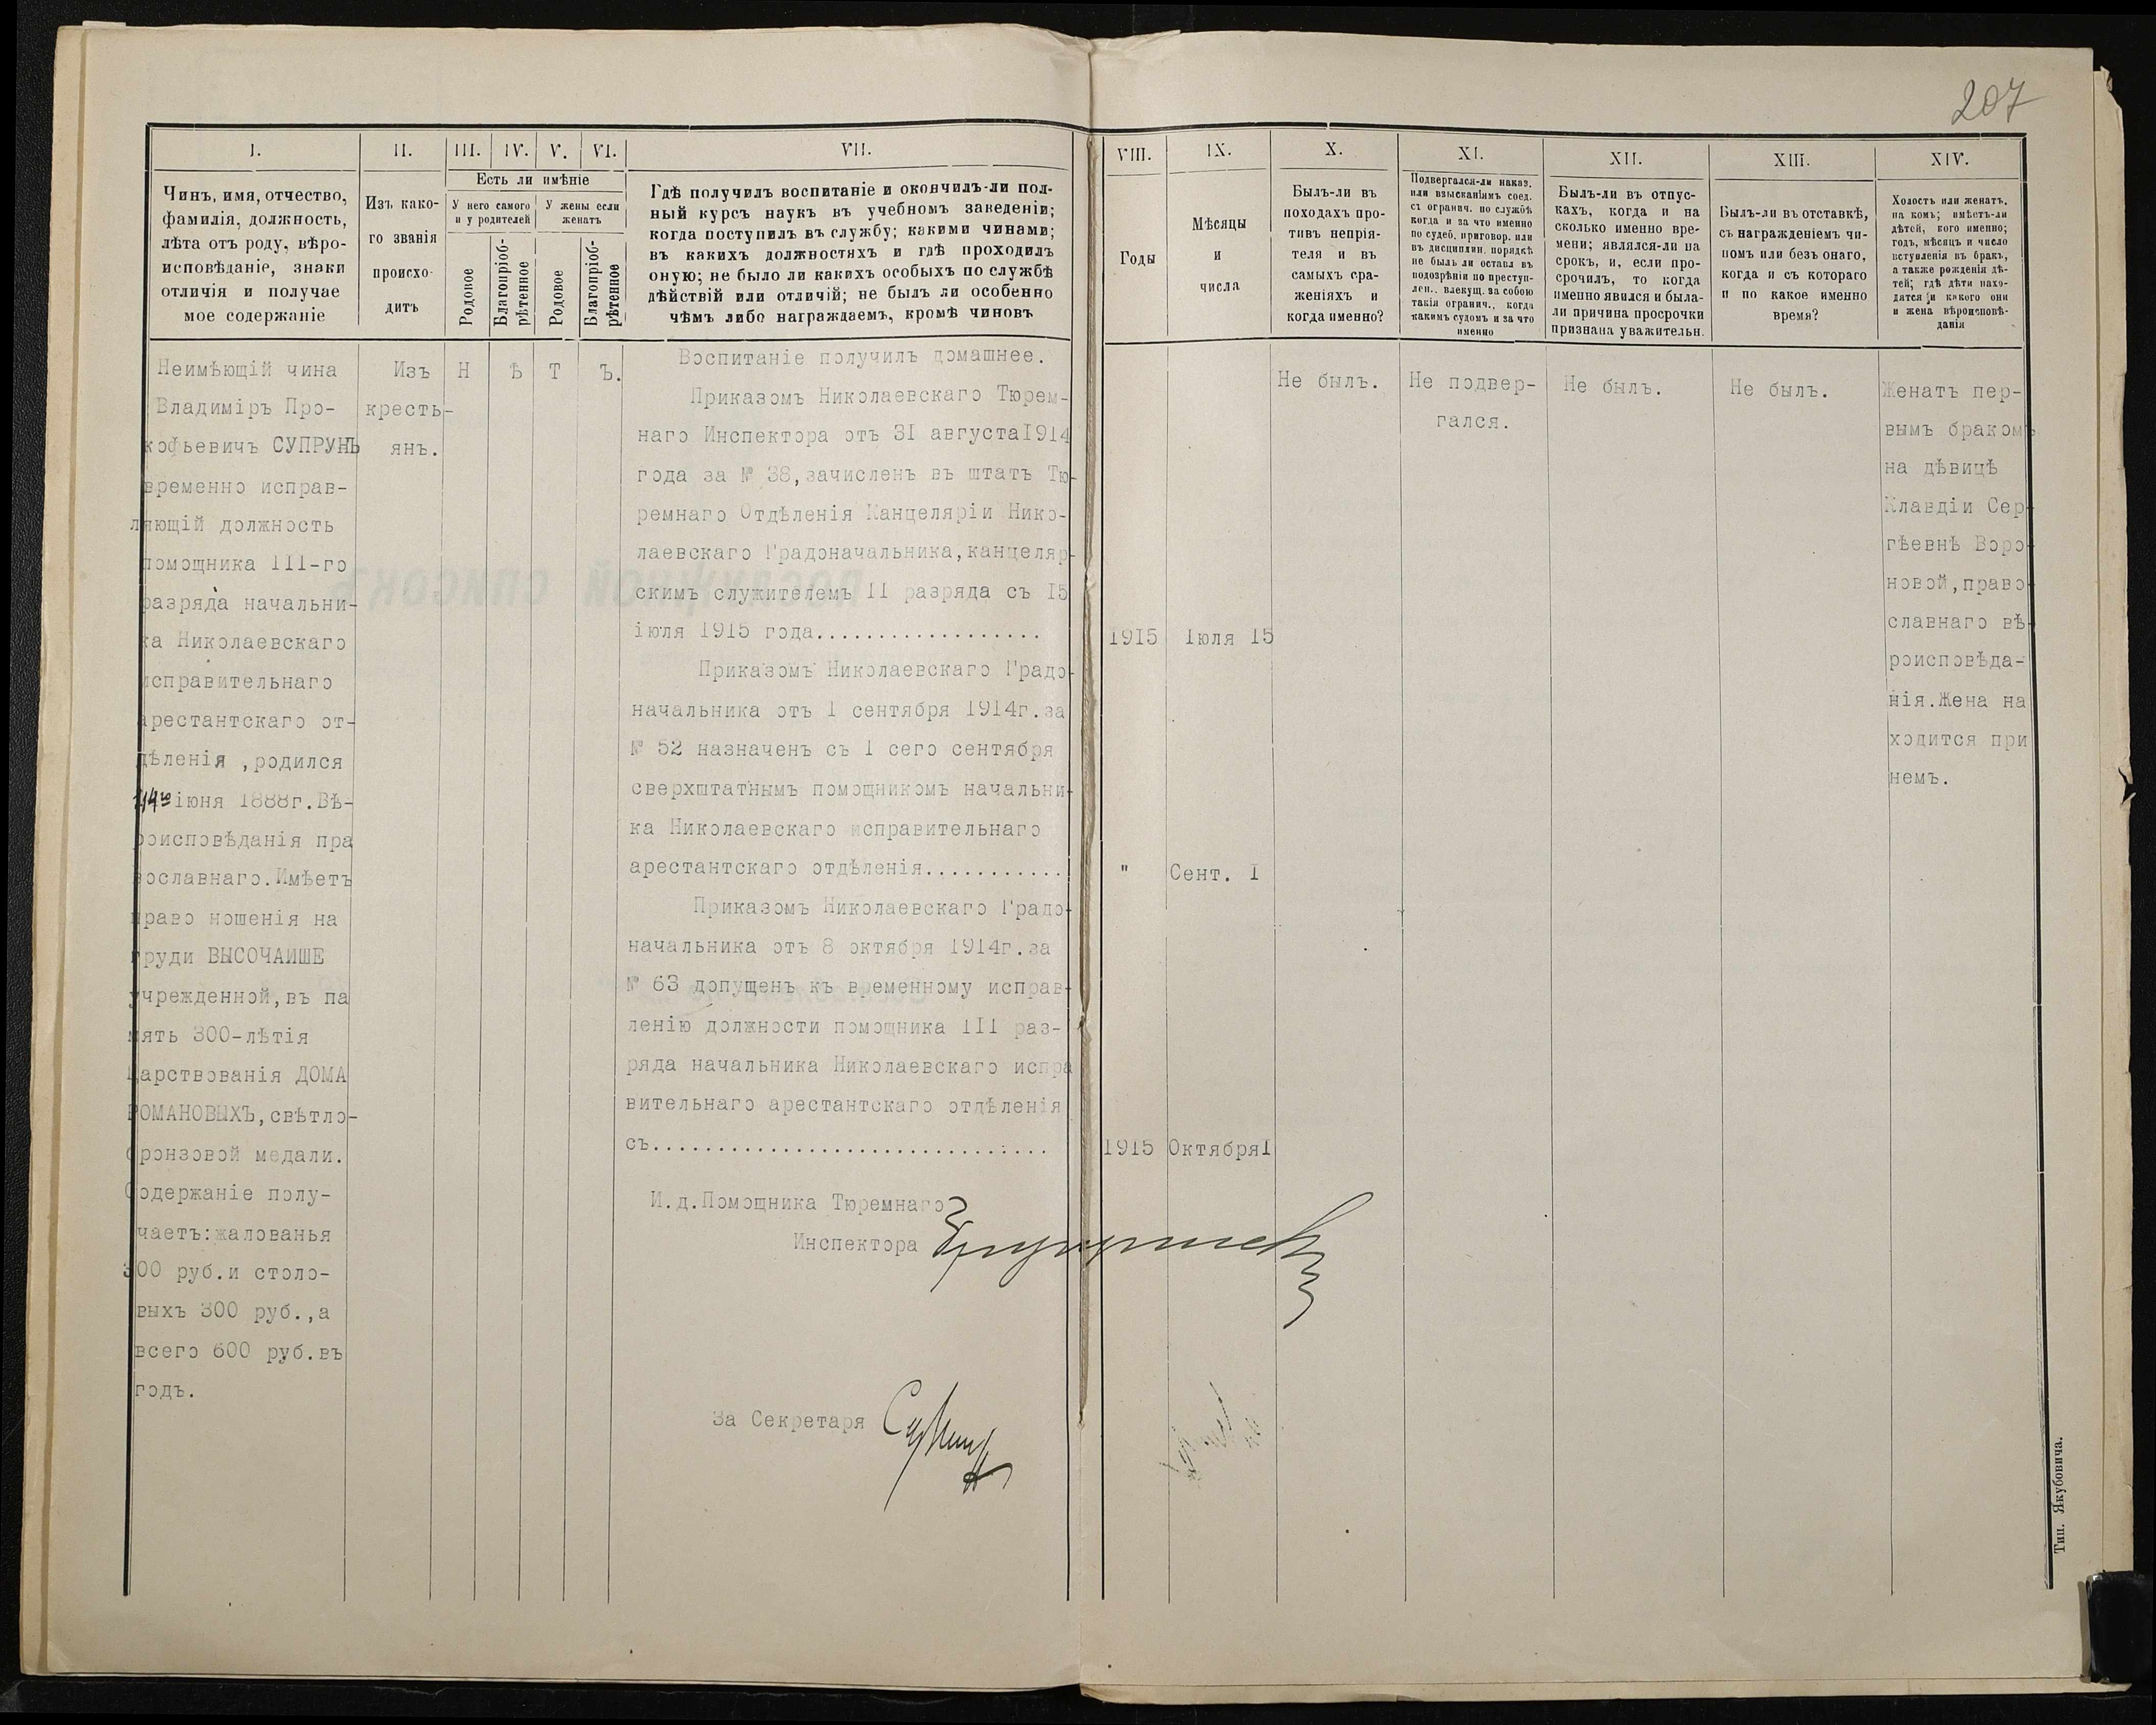 207
I.
Чинъ, имя, отчество,
фамилія, должность,
лѣта отъ роду, вѣро-
исповѣданіе, знаки
отличія и получае
мое содержаніе
II.
Изъ како-
го званія
происхо-
дитъ
III. IV. V. VI.
Есть ли имѣніе
У него самого
и у родителей
У жены если
женатъ
Родовое
Благопріоб-
рѣтенное
Родовое
Благопріоб-
рѣтенное
VII.
Гдѣ получилъ воспитаніе и окончилъ-ли пол-
ный курсъ наукъ въ учебномъ заведеніи;
когда поступилъ въ службу; какими чинами;
въ какихъ должностяхъ и гдѣ проходилъ
оную; не было ли какихъ особыхъ по службѣ
дѣйствій или отличій; не былъ ли особенно
чѣмъ либо награждаемъ, кромѣ чиновъ
VIII.
Годы
IX.
Мѣсяцы
и
числа
X.
Былъ-ли въ
походахъ про-
тивъ непрія-
теля и въ
самыхъ сра-
женіяхъ и
когда именно?
XI.
Подвергался-ли наказ.
или взысканіямъ соед.
съ огранич. по службѣ
когда и за что именно
по судеб. приговор. или
въ дисциплин. порядкѣ
не былъ ли оставл въ
подозрѣніи по преступ-
лен., влекущ. за собою
такія огранич., когда
какимъ судомъ и за что
именно
XII.
Былъ-ли въ отпус-
кахъ, когда и на
сколько именно вре-
мени; являлся-ли на
срокъ, и, если про-
срочилъ, то когда
именно явился и была-
ли причина просрочки
признана уважительн.
XIII.
Былъ-ли въ отставкѣ,
съ награжденіемъ чи-
номъ или безъ онаго,
когда и съ котораго
и по какое именно
время?
XIV.
Холостъ или женатъ,
на комъ; имѣетъ-ли
дѣтей, кого именно;
годъ, мѣсяцъ и число
вступленія въ бракъ,
а также рожденія дѣ-
тей; гдѣ дѣти нахо-
дятся и какого они
и жена вѣроисповѣ-
данія
Неимѣющій чина
Владиміръ Про-
кофьевичъ СУПРУНЪ
временно исправ-
ляющій должность
помощника III-го
разряда начальни-
ка Николаевскаго
исправительнаго
арестантскаго от-
дѣленія ,родился
14го іюня 1888г.Вѣ-
роисповѣданія пра
вославнаго.Имѣетъ
право ношенія на
груди ВЫСОЧАИШЕ
учрежденной,въ па
мять 300-лѣтія
Царствованія ДОМА
РОМАНОВЫХЪ,свѣтло-
бронзовой медали.
Содержаніе полу-
чаетъ:жалованья
300 руб.и столо-
выхъ 300 руб.,а
всего 600 руб.въ
годъ.
Изъ
кресть-
янъ.
Н Ѣ Т Ъ.
Воспитаніе получилъ домашнее.
Приказомъ Николаевскаго Тюрем-
наго Инспектора отъ 3I августаI914
года за № 38,зачисленъ въ штатъ Тю-
ремнаго Отдѣленія Канцеляріи Нико-
лаевскаго Градоначальника,канцеляр-
скимъ служителемъ II разряда съ I5
іюля 1915 года...................
Приказомъ Николаевскаго Градо-
начальника отъ I сентября 1914г.за
№ 52 назначенъ съ I сего сентября
сверхштатнымъ помощникомъ начальни-
ка Николаевскаго исправительнаго
арестантскаго отдѣленія...........
Приказомъ Николаевскаго Градо-
начальника отъ 8 октября 1914г.за
№ 63 допущенъ къ временному исправ-
ленію должности помощника III раз-
ряда начальника Николаевскаго испра
вительнаго арестантскаго отдѣленія
съ..............................
И.д.Помощника Тюремнаго
Инспектора
За Секретаря
1915 Іюля 15
" Сент. I
1915 ОктябряI
Не былъ.
Не подвер-
гался.
Не былъ.
Не былъ.
Женатъ пер-
вымъ бракомъ
на дѣвицѣ
Клавдіи Сер-
гѣевнѣ Воро-
новой,право-
славнаго вѣ-
роисповѣда-
нія.Жена на
ходится при
немъ.
Тип. Якубовича.